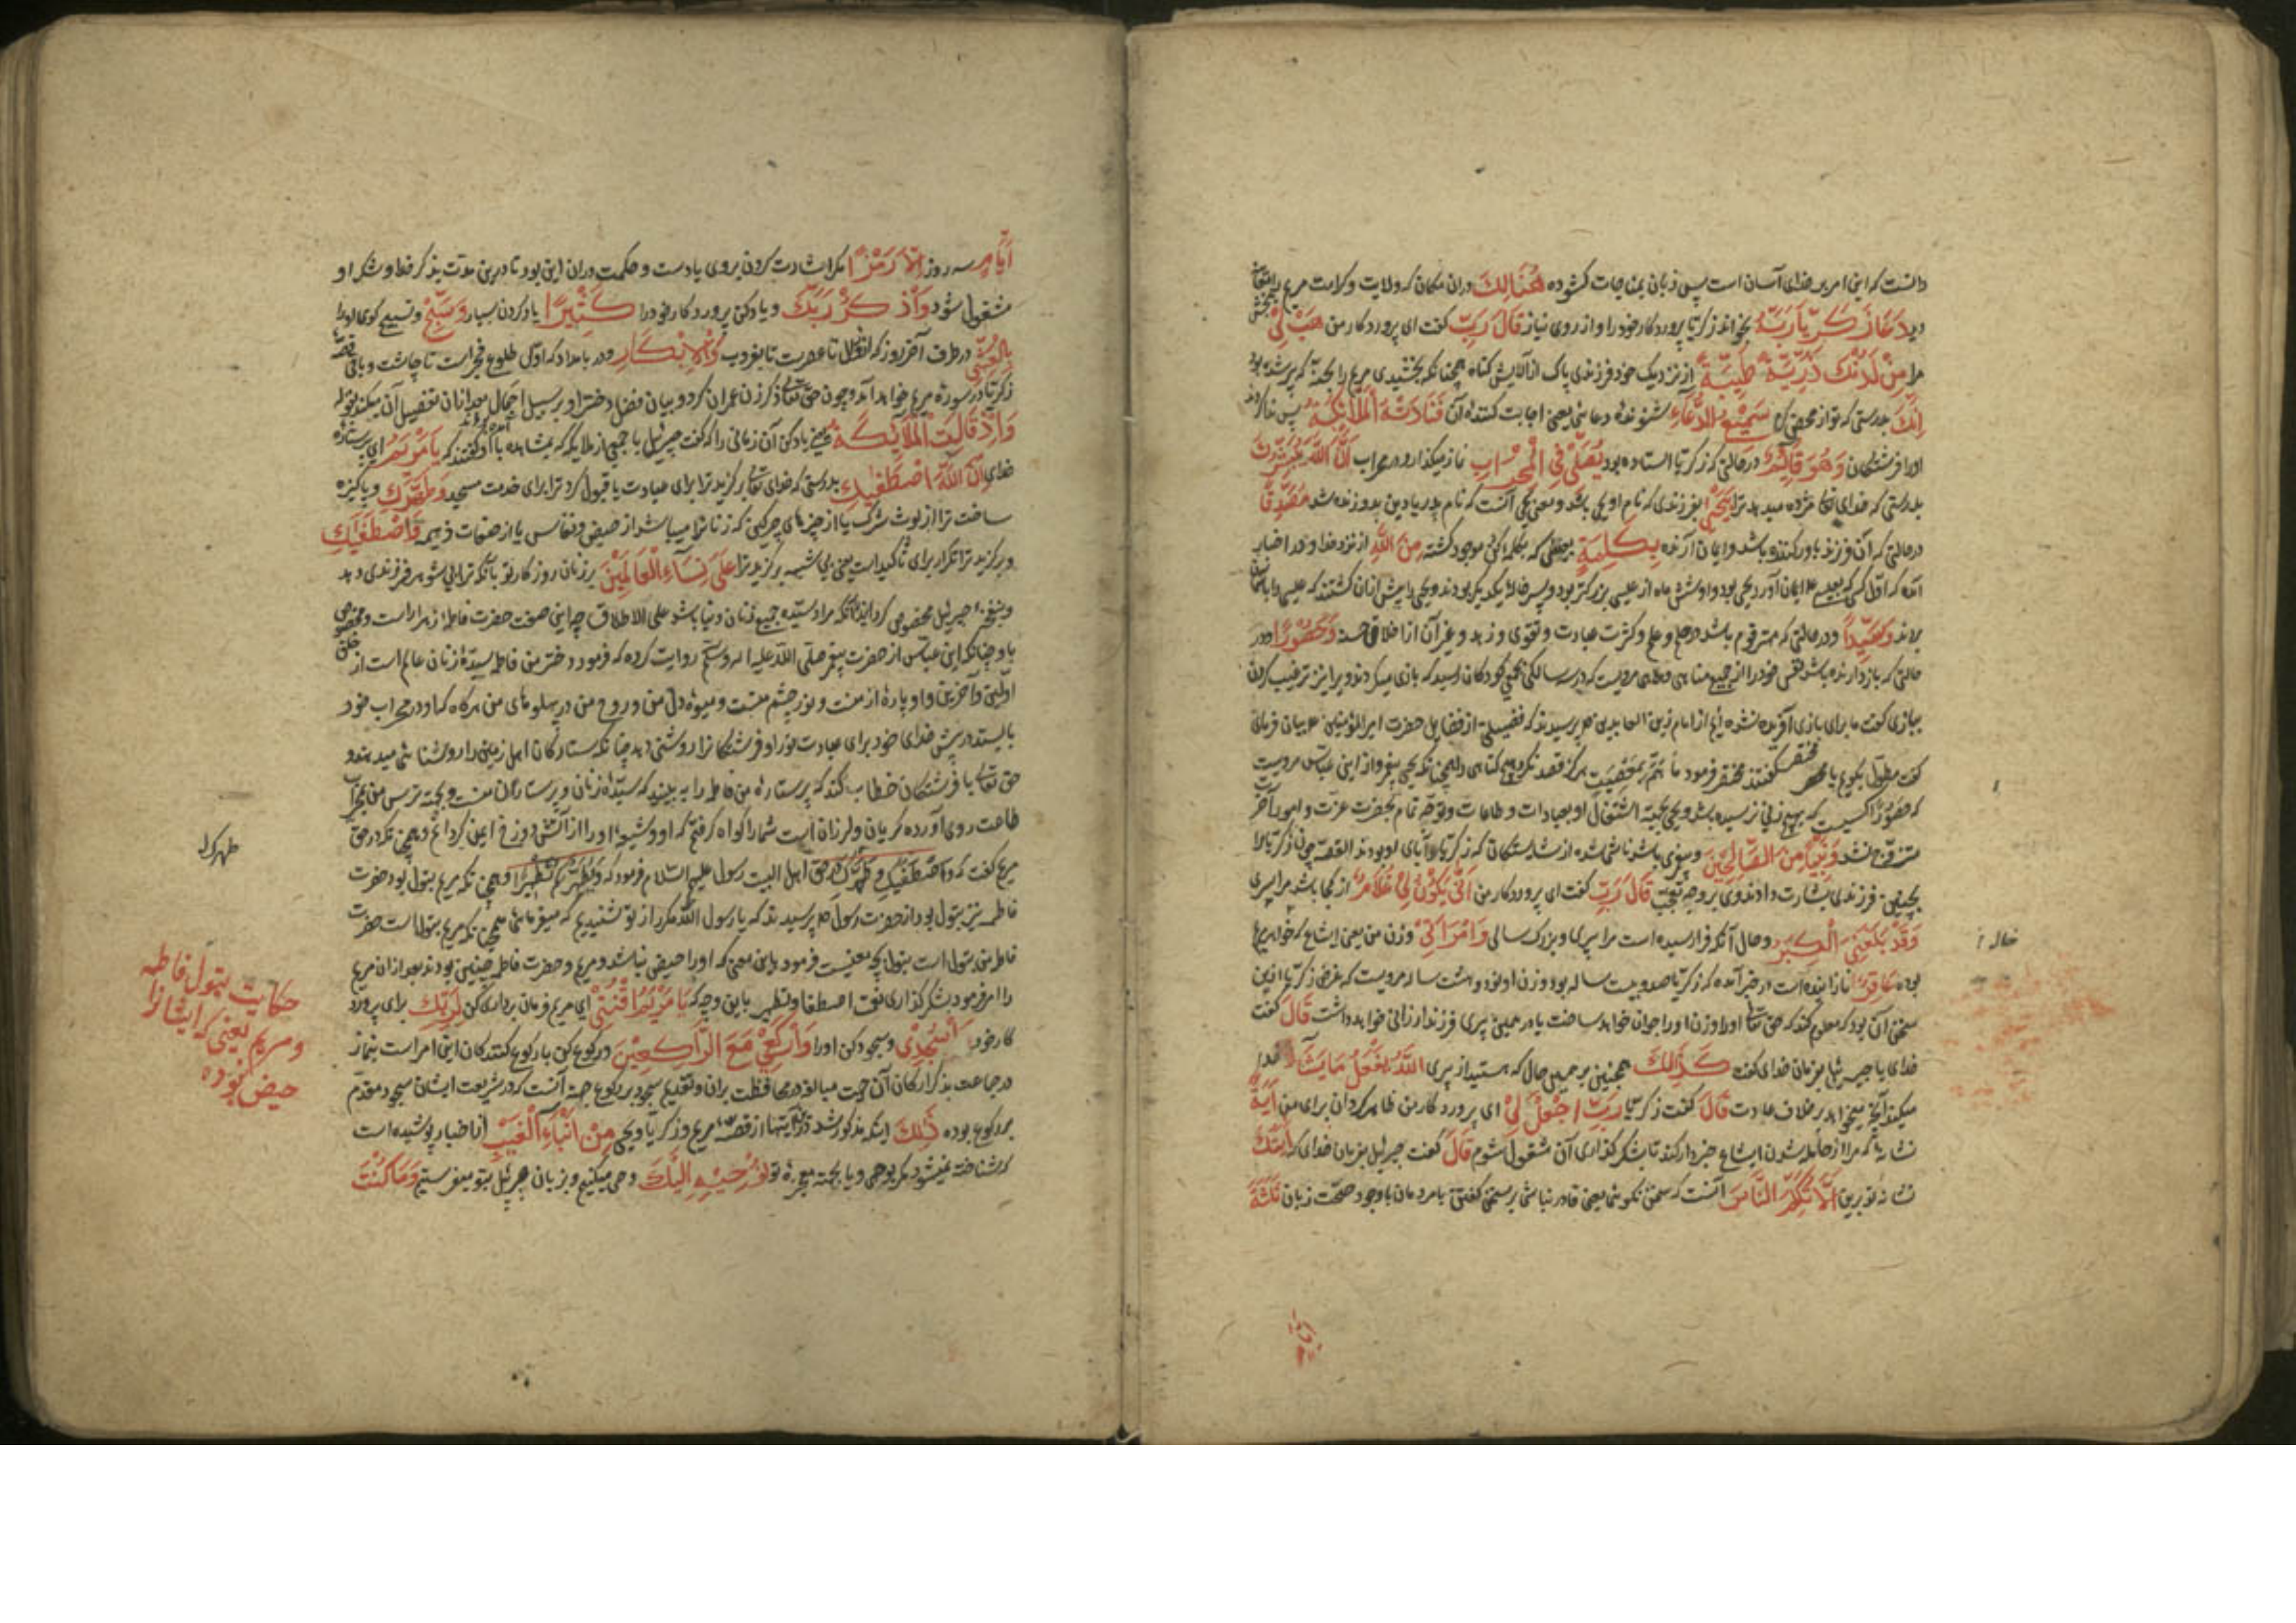 دانست که این امر بر خدای آسان است پس زبان بمناجات کشوده هُنَالِكَ دران مکان که ولایت و کرامت مریم را
دید دَعَا زَكَرِيَّا رَبَّهُ بخواند زکریا پروردکار خود را و از روی نیاز قَالَ رَبِّ کفت ای پروردکار من هَبْ لِيْ
مرا مِنْ لَدُنْكَ ذُرِّيَّةً طَيِّبَةً از نزدیک خود فرزندی پاک از آلایش کناه همچنانکه بخشیدی مریم را بحنة که پیر شده بود
اِنَّكَ بدرستی که تو از محض کرم سَمِيْعُ الدُّعَاءِ شنونده دعائی یعنی اجابت کننده آن فَنَادَتْهُ الْمَلَائِكَةُ پس ندا کردند
اورا فرشتکان وَهُوَ قَائِمٌ در حالتی که زکریا استاده بود يُصَلِّيْ فِي الْمِحْرَابِ نماز میکذارد در محراب اَنَّ اللّٰهَ يُبَشِّرُكَ
بدرستی که خدای مژده میدهد ترا بِيَحْيٰى بفرزندی که نام او یحیی باشد و معنی یحیی آنست که نام پدر یا دین بدو زنده شد مُصَدِّقًا
در حالتی که آن فرزند باور کننده باشد و ایمان آرنده بِكَلِمَةٍ که بکلمه کن موجود کشته مِنَ اللّٰهِ از نزد خدا و در اخبار
آمده که اول کسی که بعیسی ایمان آورد یحیی بود و او شش ماه از عیسی بزرکتر بود و پسر خاله یکدیکر بودند و یحیی را پیش ازان کشتند که عیسی را بآسمان
بردند وَسَيِّدًا و در حالتی که مهتر قوم باشد در حلم و علم و کثرت عبادت و تقوی و زهد و غیر آن از اخلاق حسنه وَحَصُوْرًا و در
حالتی که باز دارنده باشد نفس خود را از جمیع مناهی و ملاهی مرویست که در سه سالکی یحیی کودکان رسید که بازی میکردند و بر این ترغیب کردن
ببازی کفت ما برای بازی آفریده نشده ایم از امام زین العابدین پرسیدند که فضیلتی از فضایل حضرت امیرالمؤمنین علی بیان فرمای
کفت مطول بکویم یا مختصر کفتند مختصر فرمود مَا هَمَّ بِمَعْصِيَتٍ هرکز قصد نکرد هیچ کناهی را همچنانکه یحیی پیغمبر و از ابن عباس مرویست
که حصورا کسیست که بهیچ زنی نرسیده باشد و یحیی بجهت اشتغال او بعبادات و طاعات و توجه تمام بحضرت عزت و امور آخرت
متزوج نشد وَنَبِيًّا مِنَ الصَّالِحِيْنَ و پیغمبری باشد ناشی شده از شایستکان که زکریا با آبای او بودند القصه چون زکریا را
بچنین فرزندی بشارت دادند وی بر وجه تعجب قَالَ رَبِّ کفت ای پروردکار من اَنّٰى يَكُوْنُ لِيْ غُلَامٌ از کجا باشد مرا پسری
وَقَدْ بَلَغَنِيَ الْكِبَرُ و حال آنکه فرا رسیده است مرا پیری و بزرک سالی وَامْرَاَتِيْ و زن من یعنی ایشاع که خواهر مریم
بوده عَاقِرٌ نازاینده است در خبر آمده که زکریا صد و بیست ساله بود و زن او نود و هشت ساله مرویست که غرض زکریا ازین
سخن آن بود که معلوم کند که حق تعالی او را و زن او را جوان خواهد ساخت یا در همین پیری فرزند ارزانی خواهد داشت قَالَ کفت
خدای یا جبرئیل بفرمان خدای کفت كَذٰلِكَ همچنین بر همین حال که هستید از پیری اللّٰهُ يَفْعَلُ مَا يَشَاءُ خدا
میکند آنچه میخواهد بر خلاف عادت قَالَ کفت زکریا رَبِّ اجْعَلْ لِيْ ای پروردکار من ظاهر کردان برای من اٰيَةً
نشانه که مرا از حامله شدن ایشاع خبردار کند تا بشکر کذاری آن مشغول شوم قَالَ کفت جبرئیل بفرمان خدای که اٰيَتُكَ
نشانه تو برین اَلَّا تُكَلِّمَ النَّاسَ آنست که سخن نکوئی یعنی قادر نباشی بر سخن کفتن با مردمان با وجود صحت زبان ثَلٰثَةَ
خاله
اَيَّامٍ سه روز اِلَّا رَمْزًا مکر اشارت کردن بروی یا دست و حکمت دران این بود تا درین مدت بذکر خدا و شکر او
مشغول شود وَاذْكُرْ رَبَّكَ و یاد کن پروردکار خود را كَثِيْرًا یاد کردن بسیار وَسَبِّحْ و تسبیح کوی او را
بِالْعَشِيِّ در طرف آخر روز که از زوال تا عصرست تا بغروب وَالْاِبْكَارِ و در بامداد که اول طلوع فجر است تا چاشت و باقی قصه
زکریا در سوره مریم خواهد آمد و چون حق تعالی ذکر زن عمران کرد و بیان فضل دختر او بر سبیل اجمال بعد ازان تفصیل آن میکند بقوله
وَاِذْ قَالَتِ الْمَلَائِكَةُ یعنی یاد کن آن زمانی را که کفت جبرئیل با جمعی از ملائکه که بمشاهده با او کفتند که يَا مَرْيَمُ ای پرستنده
خدای اِنَّ اللّٰهَ اصْطَفٰيكِ بدرستی که خدای تعالی برکزید ترا برای عبادت یا قبول کرد ترا برای خدمت مسجد وَطَهَّرَكِ و پاکیزه
ساخت ترا از لوث شرک یا از چیزهای چرکین که زنانرا میباشد از حیض و نفاس یا از صفات ذمیمه وَاصْطَفٰيكِ
و برکزید ترا تکرار برای تاکید است یعنی بی شبهه برکزید ترا عَلٰى نِسَاءِ الْعَالَمِيْنَ بر زنان روزکار تو بآنکه ترا بی شوهر فرزندی دهد
و بنفخ جبرئیل مخصوص کردانید نه آنکه مراد سیده جمیع زنان دنیا باشد علی الاطلاق چه این صفت حضرت فاطمه زهرا راست و مخصوص
باو چنانکه ابن عباس از حضرت پیغمبر صلی الله علیه اله وسلم روایت کرده که فرمود دختر من فاطمه سیده زنان عالم است از خلق
اولین و آخرین و او پاره از منست و نور چشم منست و میوه دل من و روح من در پهلوهای من هرکاه که او در محراب خود
بایستد در پیش خدای خود برای عبادت نور او فرشتکانرا روشنی دهد چنانکه ستارکان اهل زمین را روشنائی میدهند و
حق تعالی با فرشتکان خطاب کند که پرستاره من فاطمه را به بینید که سیده زنان و پرستاران منست و بجهته ترس من بمحراب
طاعت روی آورده کریان و لرزان است شما را کواه کرفتم که او و شیعه او را از آتش دوزخ ایمن کردانم و همچنانکه در حق
مریم کفت که اصْطَفٰيكِ وَطَهَّرَكِ در حق اهل البیت رسول علیهم السلام فرمود که وَيُطَهِّرَكُمْ تَطْهِيْرًا و همچنانکه مریم بتول بود حضرت
فاطمه نیز بتول بود از حضرت رسول پرسیدند که یا رسول الله مکرر از تو شنیدیم که میفرمائی همچنانکه مریم بتول است حضرت
فاطمه نیز بتول است بتول بچه معنیست فرمود باین معنی که او را حیض نباشد و مریم و حضرت فاطمه چنین بودند بعد ازان مریم
را امر فرمود بشکر کذاری نعمت اصطفا و تطهیر باین وجه که يَا مَرْيَمُ اقْنُتِيْ ای مریم فرمان برداری کن لِرَبِّكِ برای پرورد
کار خود وَاسْجُدِيْ و سجود کن او را وَارْكَعِيْ مَعَ الرَّاكِعِيْنَ و رکوع کن با رکوع کنندکان این امر است بنماز
در جماعت بذکر ارکان آن جهت مبالغه در محافظت بران و تقدیم سجود بر رکوع جهت آنست که در شریعت ایشان سجود مقدم
بر رکوع بوده ذٰلِكَ اینکه مذکور شد از قصه مریم و زکریا و یحیی مِنْ اَنْبَاءِ الْغَيْبِ از اخبار پوشیده است
که شناخته نمیشود مکر بوحی و یا بجهته معجزه تو نُوْحِيْهِ اِلَيْكَ وحی میکنیم و بزبان جبرئیل بتو میفرستیم وَمَا كُنْتَ
طهرک
حکایت بتول فاطمه
و مریم یعنی که ایشانرا
حیض نبوده